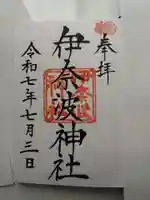 奉拝
伊奈波神社
令和七年七月三日